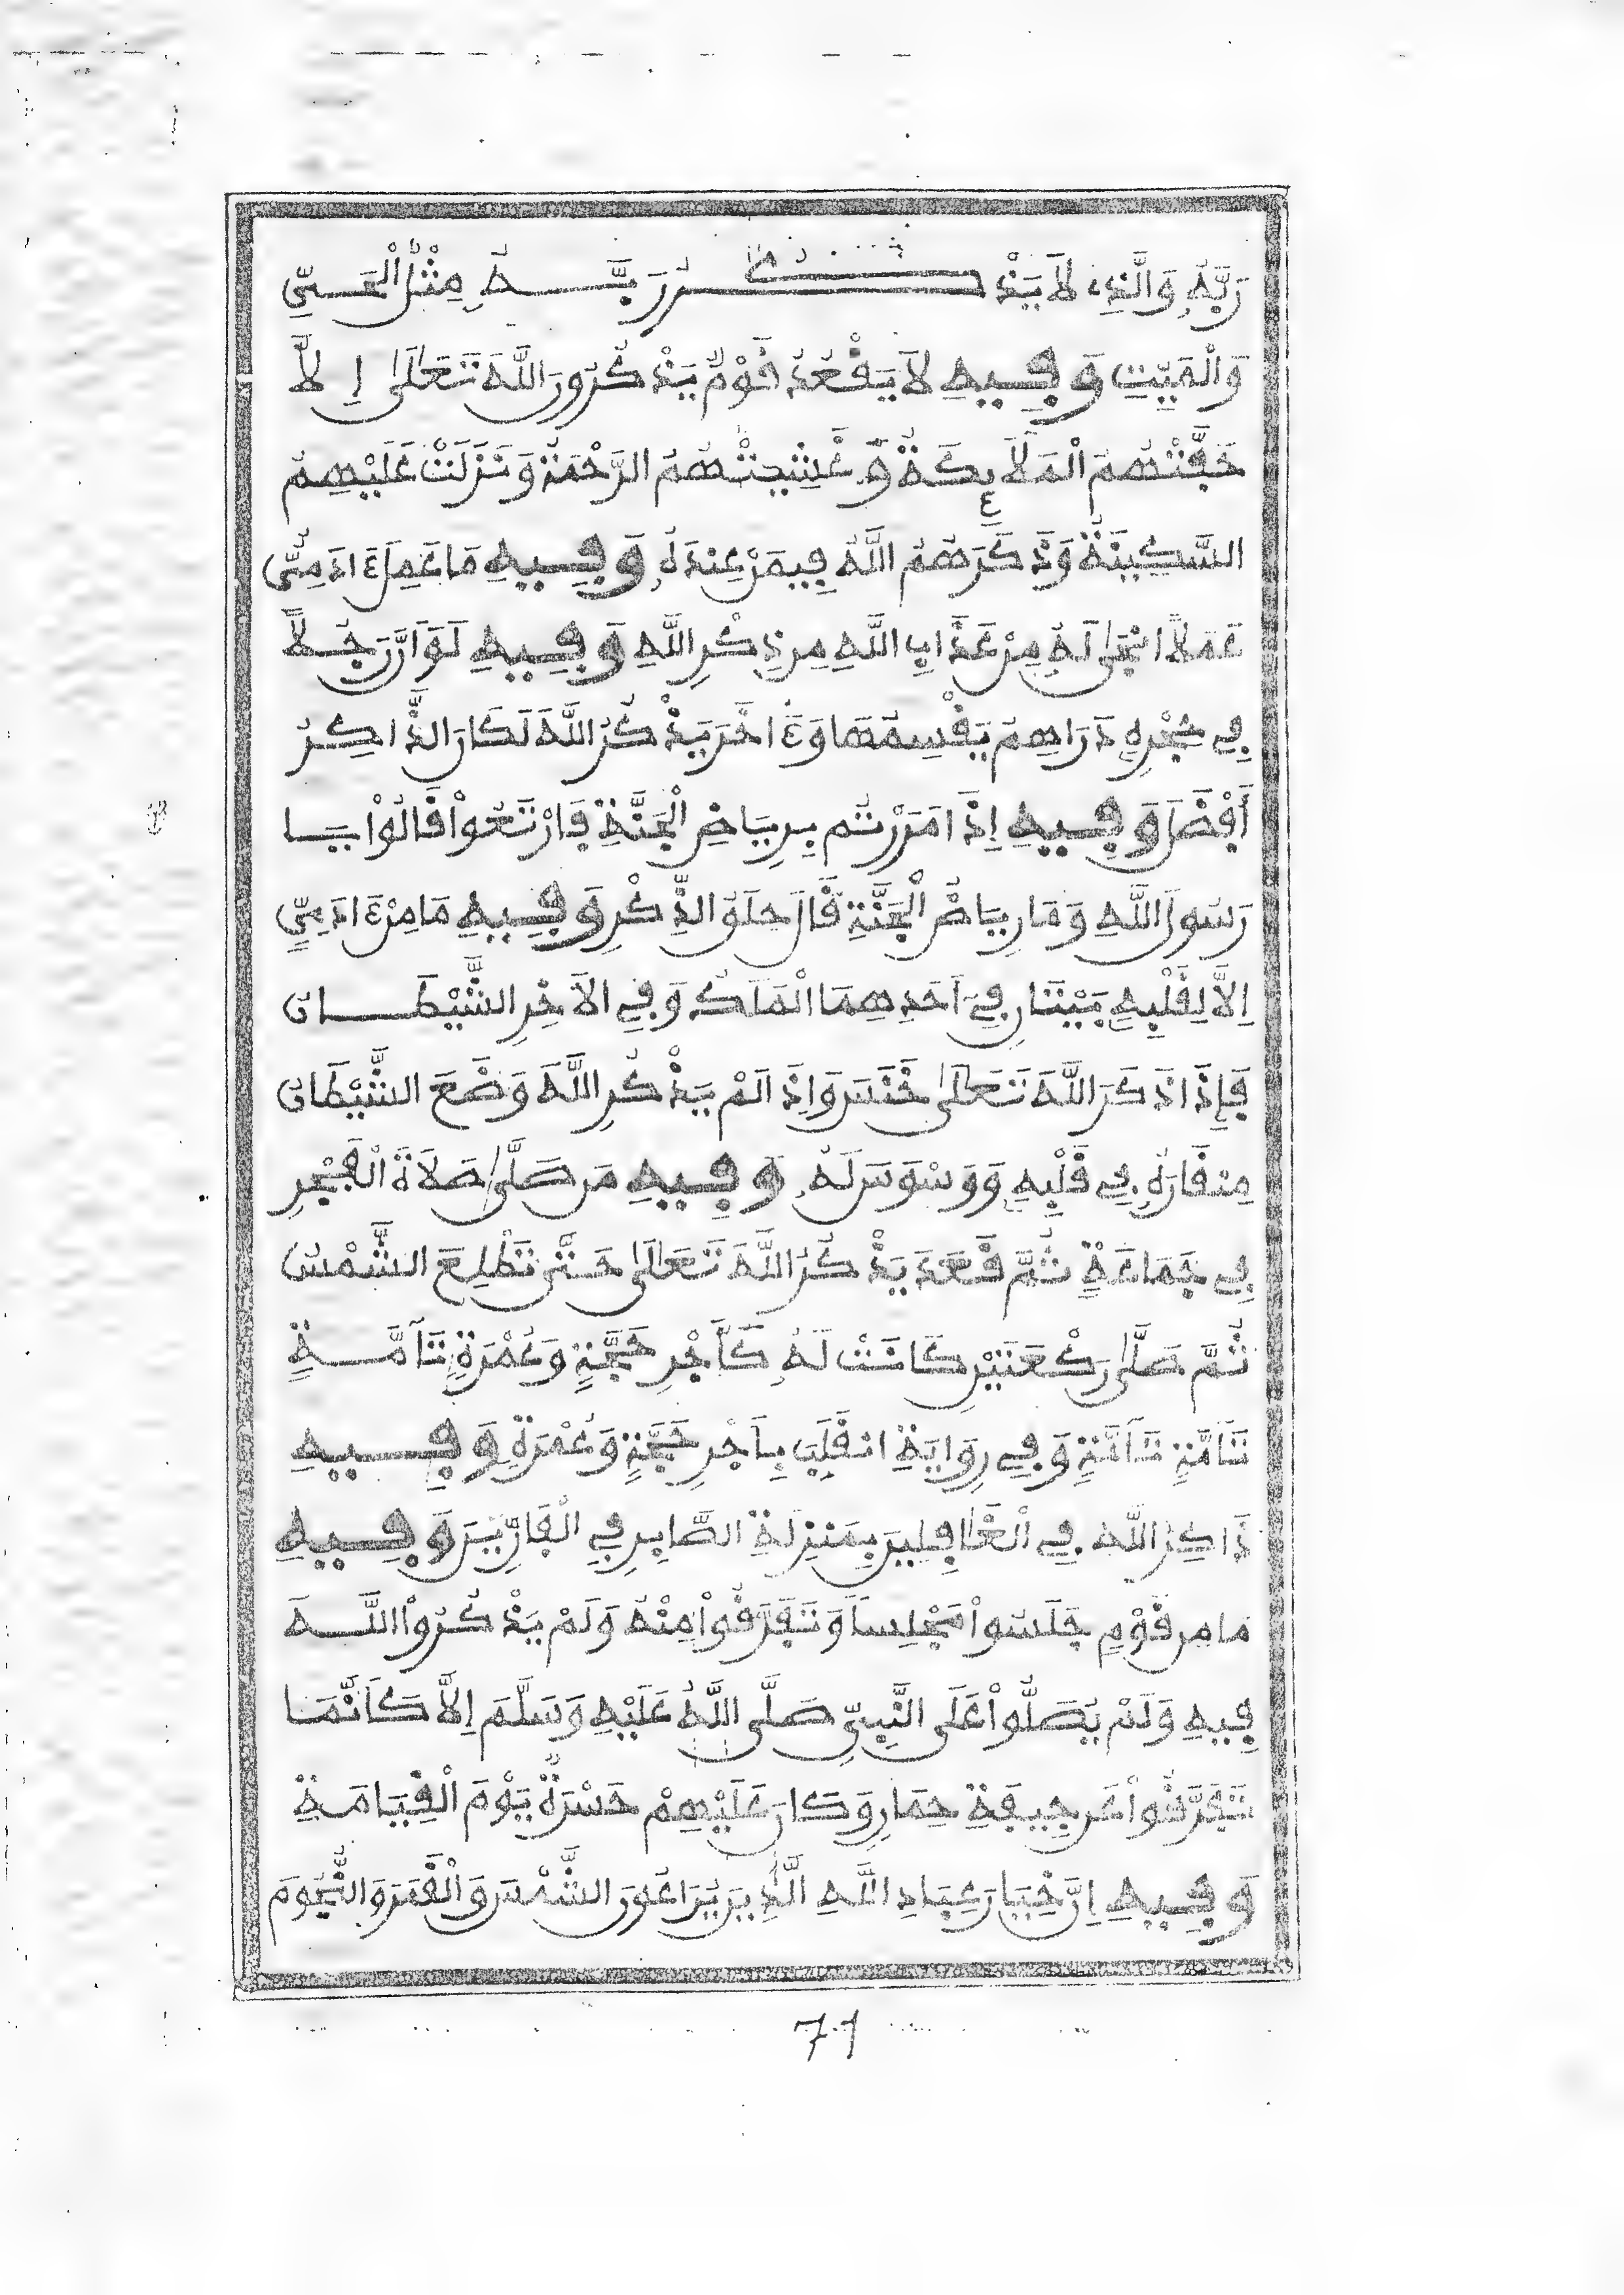 رَبَّهُ وَالَّذِي لَا يَذْكُرُ رَبَّهُ مِثْلُ الْحَيِّ
وَالْمَيِّتِ وَفِيهِ لَا يَقْعُدُ قَوْمٌ يَذْكُرُونَ اللَّهَ تَعَالَى إِلَّا
حَفَّتْهُمُ الْمَلَائِكَةُ وَغَشِيَتْهُمُ الرَّحْمَةُ وَنَزَلَتْ عَلَيْهِمُ
السَّكِينَةُ وَذَكَرَهُمُ اللَّهُ فِيمَنْ عِنْدَهُ وَفِيهِ مَا عَمِلَ ءَادَمِيٌّ
عَمَلًا انْجَى لَهُ مِنْ عَذَابِ اللَّهِ مِن ذِكْرِ اللَّهِ وَفِيهِ لَوَ اَنَّ رَجُلًا
فِي حِجْرِهِ دَرَاهِمُ يَقْسِمُهَا وَءَاخَرَ يَذْكُرُ اللَّهَ لَكَانَ الذَّاكِرُ
أَفْضَلَ وَفِيهِ إِذَا مَرَرْتُم بِرِيَاضِ الْجَنَّةِ فَارْتَعُواْ قَالُواْ يَا
رَسُولَ اللَّهِ وَمَا رِيَاضُ الْجَنَّةِ قَالَ حِلَقُ الذِّكْرِ وَفِيهِ مَا مِنْ ءَادَمِيٍّ
اِلَّا لِقَلْبِهِ بَيْتَانِ فِي أَحَدِهِمَا الْمَلَكُ وَفِي الْآخِرِ الشَّيْطَانُ
فَإِذَا ذَكَرَ اللَّهَ تَعَالَى خَنَسَ وَإِذَا لَمْ يَذْكُرِ اللَّهَ وَضَعَ الشَّيْطَانُ
مِنْقَارَهُ فِي قَلْبِهِ وَوَسْوَسَ لَهُ وَفِيهِ مَن صَلَّى صَلَاةَ الْفَجْرِ
فِي جَمَاعَةٍ ثُمَّ قَعَدَ يَذْكُرُ اللَّهَ تَعَالَى حَتَّى تَطْلِعَ الشَّمْسُ
ثُمَّ صَلَّى رَكْعَتَيْنِ كَانَتْ لَهُ كَأَجْرِ حَجَّةٍ وَعُمْرَةٍ تَآمَّةٍ
تَامَّةٍ تَآمَّةٍ وَفِي رِوَايَةٍ انْقَلَبَ بِأَجْرِ حَجَّةٍ وَعُمْرَةٍ وَفِيهِ
ذَاكِرُ اللَّهِ فِي الْغَافِلِينَ بِمَنْزِلَةِ الصَّابِرِ فِي الْفَارِّينَ وَفِيهِ
مَا مِن قَوْمٍ جَلَسُواْ مَجْلِسًا وَتَفَرَّقُواْ مِنْهُ وَلَمْ يَذْكُرُواْ اللَّهَ
فِيهِ وَلَمْ يُصَلُّواْ عَلَى النَّبِيِّ صَلَّى اللَّهُ عَلَيْهِ وَسَلَّمَ اِلَّا كَأَنَّمَا
تَفَرَّقُواْ عَن جِيفَةِ حِمَارٍ وَكَانَ عَلَيْهِمْ حَسْرَةً يَوْمَ الْقِيَامَةِ
وَفِيهِ اِنَّ خِيَارَ عِبَادِ اللَّهِ الَّذِينَ يُرَاعُونَ الشَّمْسَ وَالْقَمَرَ وَالنُّجُومَ
71